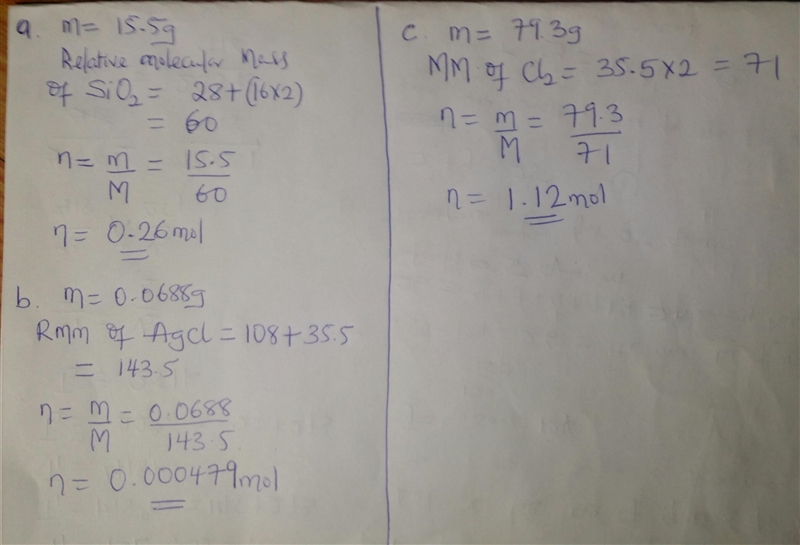 a. m = 15.5g
Relative molecular Mass
of SiO₂ = 28+(16×2)
= 60
n = m/M = 15.5/60
n = 0.26 mol
b. m = 0.0688g
RMM of AgCl = 108+35.5
= 143.5
n = m/M = 0.0688/143.5
n = 0.000479 mol
c. m = 79.3g
MM of Cl₂ = 35.5×2 = 71
n = m/M = 79.3/71
n = 1.12 mol